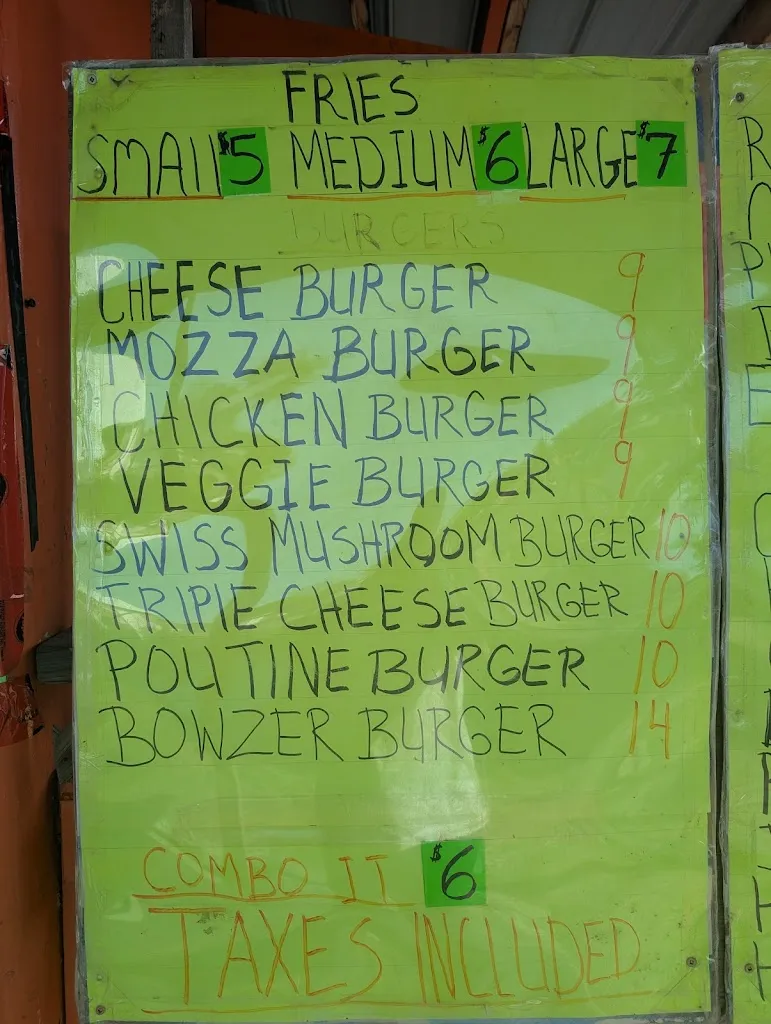 FRIES
SMALL $5 MEDIUM $6 LARGE $7
BURGERS
CHEESE BURGER 9
MOZZA BURGER 9
CHICKEN BURGER 9
VEGGIE BURGER 9
SWISS MUSHROOM BURGER 10
TRIPLE CHEESE BURGER 10
POUTINE BURGER 10
BOWZER BURGER 14
COMBO IT $6
TAXES INCLUDED